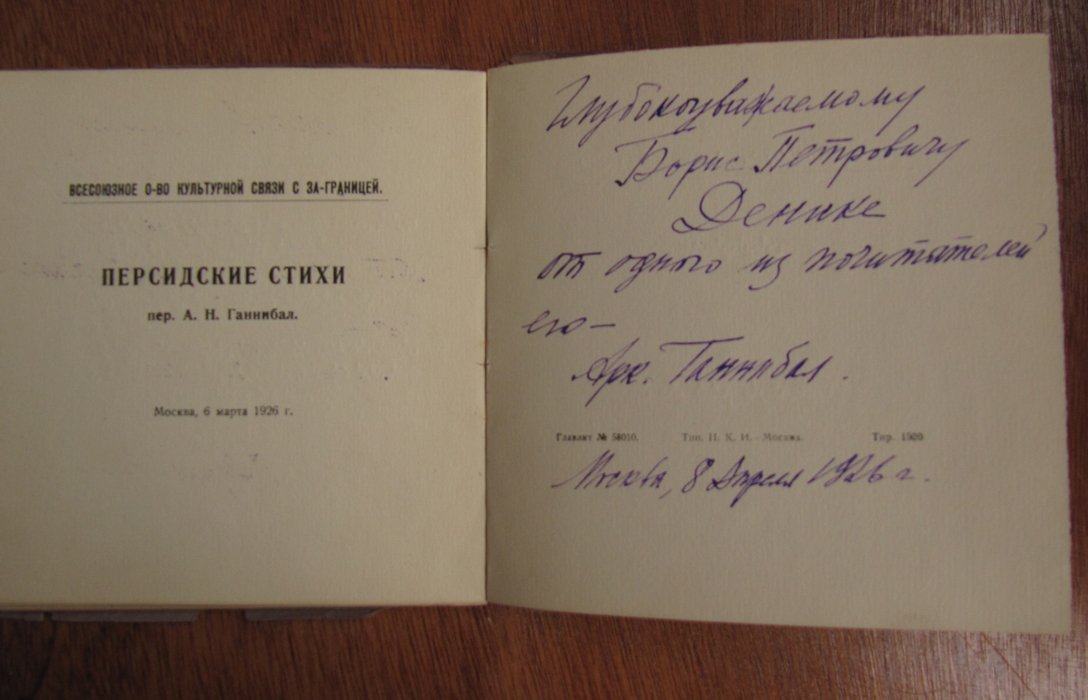 ВСЕСОЮЗНОЕ О-ВО КУЛЬТУРНОЙ СВЯЗИ С ЗА-ГРАНИЦЕЙ.
ПЕРСИДСКИЕ СТИХИ
пер. А. Н. Ганнибал.
Москва, 6 марта 1926 г.
Глубокоуважаемому
Борис Петровичу
Денике
от одного из почитателей
его—
Арк. Ганнибал.
Главлит № 58010. Тип. Н. К. И.—Москва. Тир. 1500
Москва, 8 Апреля 1926 г.